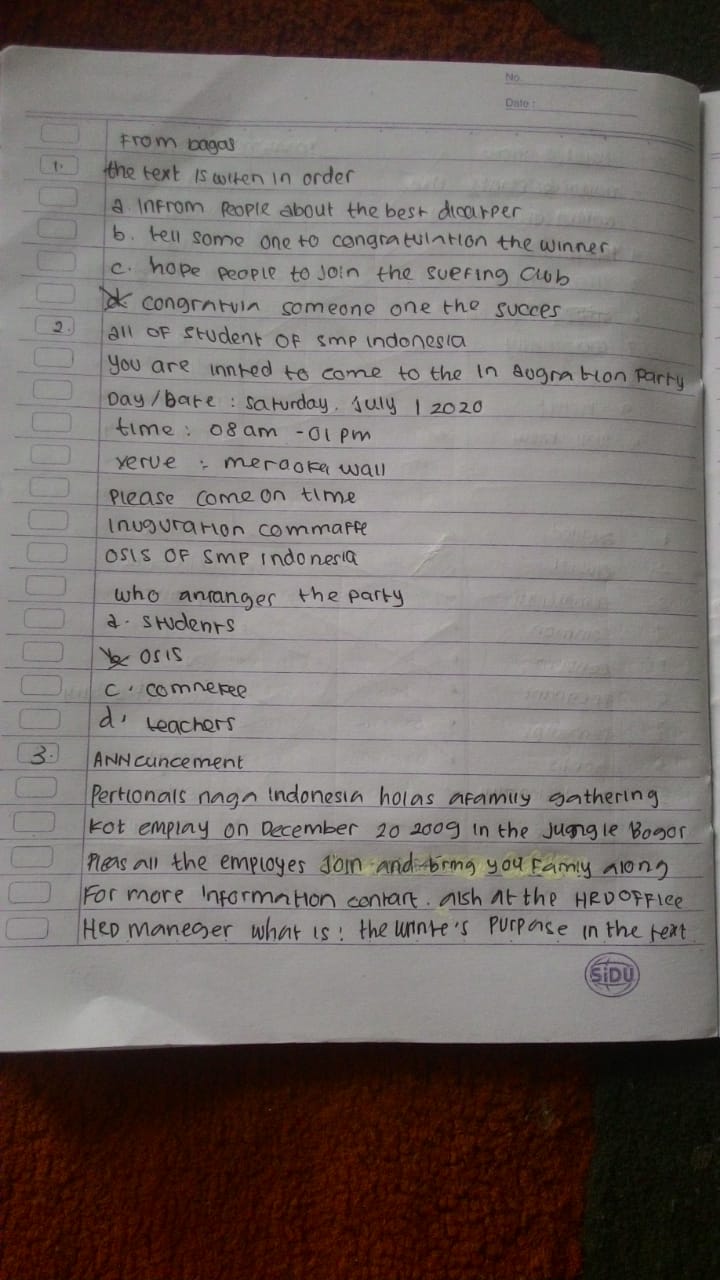 No.
Date :
From bagas
1. the text is writen in order
a. Infrom people about the best dicarper
b. tell some one to congratulation the winner
c. hope people to join the suefing club
d congratuin someone one the succes
2. all of student of smp indonesia
you are innted to come to the In augration party
Day/Date : saturday, July 1 2020
time : 08 am - 01 pm
verue : meraoka wall
please come on time
Inuguration commaffe
OSIS OF smp indonesia
who arranger the party
a. students
b OSIS
c. comnetee
d. teachers
3. ANNcuncement
Pertionals naga indonesia holas afamily gathering
kot employ on December 20 2009 in the jungle Bogor
Pleas all the employes Join and bring you Famiy along
For more information contart. aish at the HRD OFFICE
HRD maneger what is : the wrinte's purpose in the text
SiDU